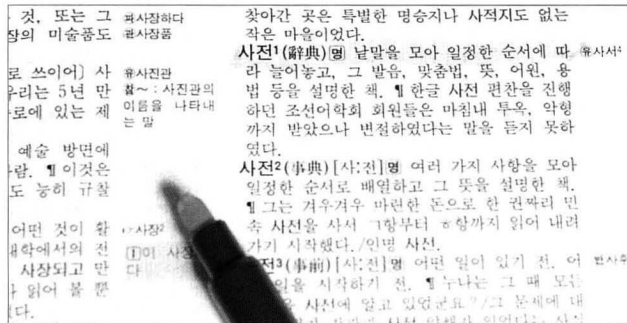 것, 또는 그
장의 미술품도
로 쓰이어] 사
우리는 5년 만
로에 있는 제
예술 방면에
람. ¶ 이것은
도 능히 규찰
어떤 것이 활
대학에서의 전
사장되고 만
읽어 볼 뿐
다.
파사장하다
관사장품
유사진관
참～ : 사진관의
이름을 나타내
는 말
사장²
1이 사장
다
찾아간 곳은 특별한 명승지나 사적지도 없는
작은 마을이었다.
사전¹(辭典)명 낱말을 모아 일정한 순서에 따
라 늘어놓고, 그 발음, 맞춤법, 뜻, 어원, 용
법 등을 설명한 책. ¶ 한글 사전 편찬을 진행
하던 조선어학회 회원들은 마침내 투옥, 악형
까지 받았으나 변절하였다는 말을 듣지 못하
였다.
사전²(事典)[사:전]명 여러 가지 사항을 모아
일정한 순서로 배열하고 그 뜻을 설명한 책.
¶ 그는 겨우겨우 마련한 돈으로 한 권짜리 민
속 사전을 사서 ㄱ항부터 ㅎ항까지 읽어 내려
가기 시작했다. /인명 사전.
전³(事前)[사:전]명 어떤 일이 있기 전. 어
일을 시작하기 전. ¶ 누나는 그 때 모든
사전에 알고 있었군요?/그 문제에 대
유사서⁴
반사후